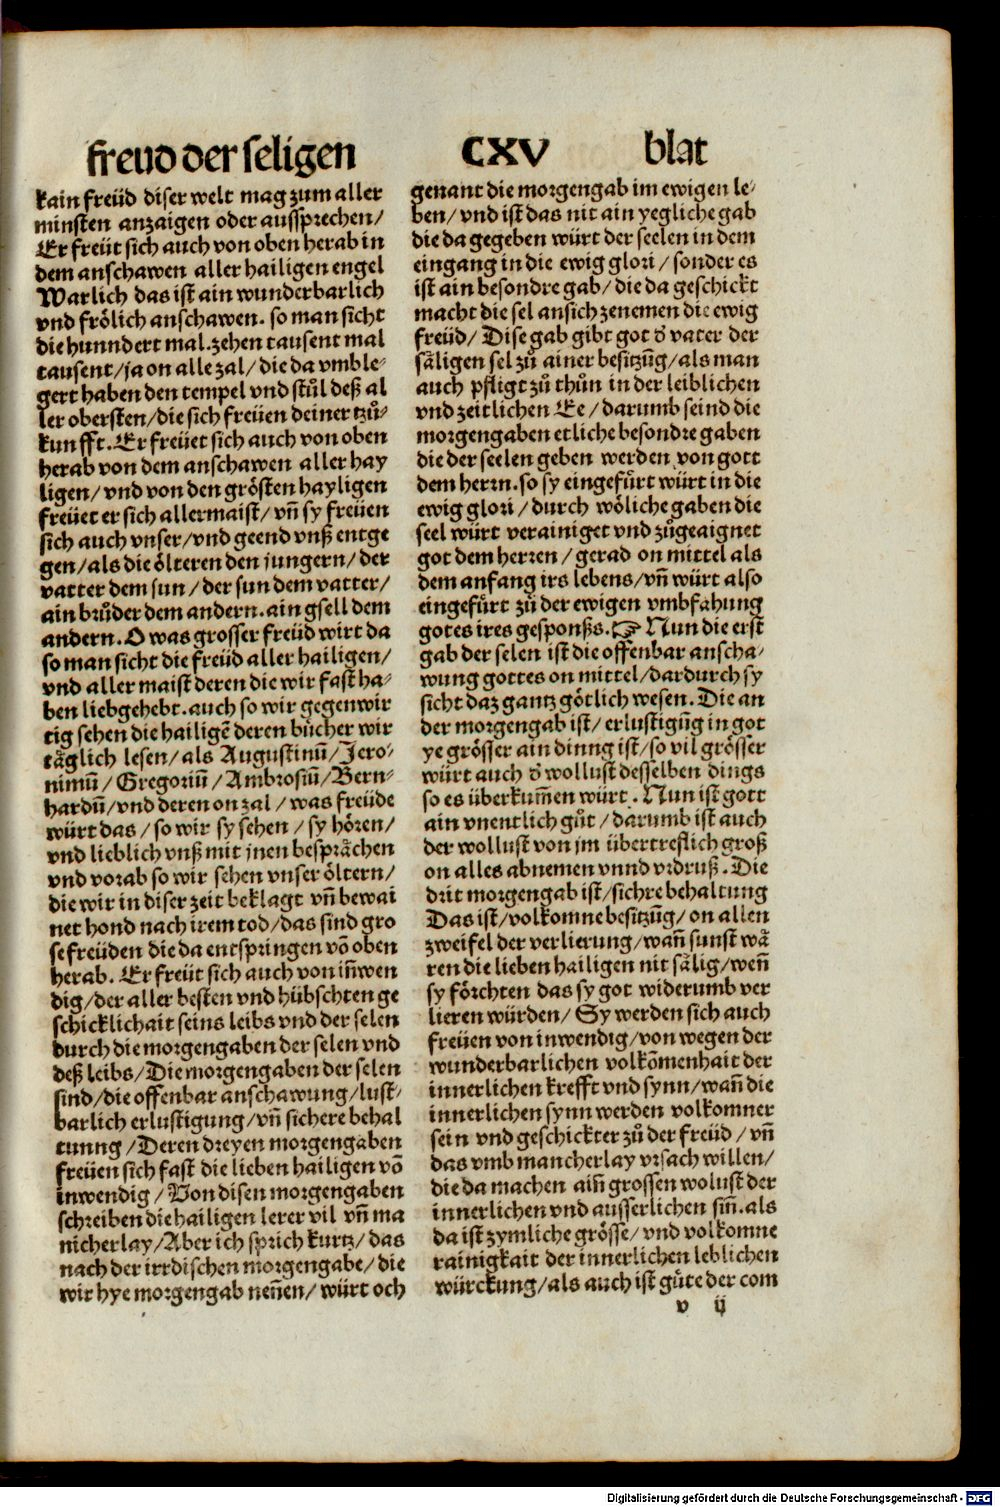 freud der seligen CXV blat
kain freüd diser welt mag zum aller
minsten anzaigen oder aussprechen/
Er freüt sich auch von oben herab in
dem anschawen aller hailigen engel
Warlich das ist ain wunderbarlich
vnd frölich anschawen. so man sicht
die hunndert mal. zehen tausent mal
tausent/ja on alle zal/die da vmble-
gert haben den tempel vnd stůl deß al
ler obersten/die sich freüen deiner tzů-
kunfft. Er freüet sich auch von oben
herab von dem anschawen aller hay
ligen/vnd von den grösten hayligen
freüet er sich allermaist/vn̄ sy freüen
sich auch vnser/vnd geend vnß entge
gen/als die ölteren den jungern/der
vatter dem sun/der sun dem vatter/
ain brůder dem andern. ain gsell dem
andern. O was grosser freüd wirt da
so man sicht die freüd aller hailigen/
vnd aller maist deren die wir fast ha-
ben lieb gehebt. auch so wir gegenwir
tig sehen die hailigē deren bücher wir
täglich lesen/als Augustinū/Jero-
nimū/Gregoriū/Ambrosiū/Bern-
hardū/vnd deren on zal/was freüde
würt das/so wir sy sehen/sy hören/
vnd lieblich vnß mit jnen besprächen
vnd vorab so wir sehen vnser öltern/
die wir in diser zeit beklagt vn̄ bewai
net hond nach irem tod/das sind gro
se freüden die da entspringen vō oben
herab. Er freüt sich auch von in̄wen
dig/der aller besten vnd hübschten ge
schicklichait seins leibs vnd der selen
durch die morgengaben der selen vnd
deß leibs/Die morgengaben der selen
sind/die offenbar anschawung/lust-
barlich erlustigung/vn̄ sichere behal
tunng/Deren dreyen morgengaben
freüen sich fast die lieben hailigen vō
inwendig/Von disen morgengaben
schreiben die hailigen lerer vil vn̄ ma
nicherlay/Aber ich sprich kurtz/das
nach der irrdischen morgengabe/die
wir hye morgengab nen̄en/würt och
genant die morgengab im ewigen le-
ben/vnd ist das nit ain yegliche gab
die da gegeben würt der seelen in dem
eingang in die ewig glori/sonder es
ist ain besondre gab/die da geschickt
macht die sel an sich zenemen die ewig
freüd/Dise gab gibt got d̄ vater der
säligen sel zů ainer besitzūg/als man
auch pfligt zů thůn in der leiblichen
vnd zeitlichen Ee/darumb seind die
morgengaben etliche besondre gaben
die der seelen geben werden von gott
dem herrn. so sy eingefürt würt in die
ewig glori/durch wöliche gaben die
seel würt verainiget vnd zůgeaignet
got dem herren/gerad on mittel als
dem anfang irs lebens/vn̄ würt also
eingefürt zů der ewigen vmbfahung
gotes ires gesponßs. ☞ Nun die erst
gab der selen ist die offenbar anscha-
wung gottes on mittel/dardurch sy
sicht daz gantz götlich wesen. Die an
der morgengab ist/erlustigūg in got
ye grösser ain dinng ist/so vil grösser
würt auch d̄ wollust desselben dings
so es überkum̄en würt. Nun ist gott
ain vnentlich gůt/darumb ist auch
der wollust von jm übertreflich groß
on alles abnemen vnnd vrdruß. Die
drit morgengab ist/sichre behaltung
Das ist/volkomne besitzūg/on allen
zweifel der verlierung/wan̄ sunst wä
ren die lieben hailigen nit sälig/wen̄
sy förchten das sy got widerumb ver
lieren würden/Sy werden sich auch
freüen von inwendig/von wegen der
wunderbarlichen volkōmenhait der
innerlichen krefft vnd synn/wan̄ die
innerlichen synn werden volkomner
sein vnd geschickter zů der freüd/vn̄
das vmb mancherlay vrsach willen/
die da machen ain̄ grossen wolust der
innerlichen vnd ausserlichen sin̄. als
da ist zymliche grösse/vnd volkomne
rainigkait der innerlichen leblichen
würckung/als auch ist güte der com
v ij
Digitalisierung gefördert durch die Deutsche Forschungsgemeinschaft - DFG